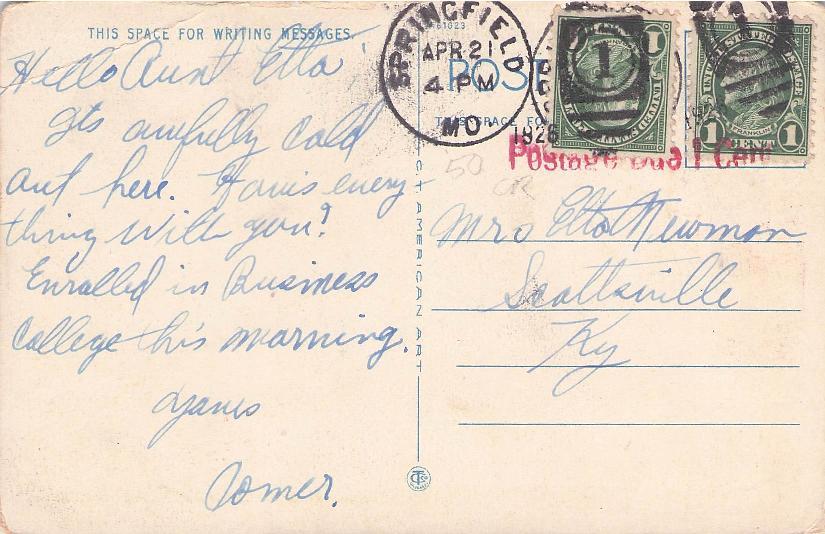 THIS SPACE FOR WRITING MESSAGES.
Hello Aunt Etta
Its awfully cold
out here. How is every
thing with you?
Enrolled in Business
College this morning.
Yours
Comer.
61623
SPRINGFIELD
APR 21
4 PM
MO.
1926
POST
THIS SPACE FO
CT AMERICAN ART
1
1
UNITED STATES POSTAGE
FRANKLIN
1 CENT 1
Postage Due 1 Cent
50
Mrs Etta Newman
Scottsville
Ky